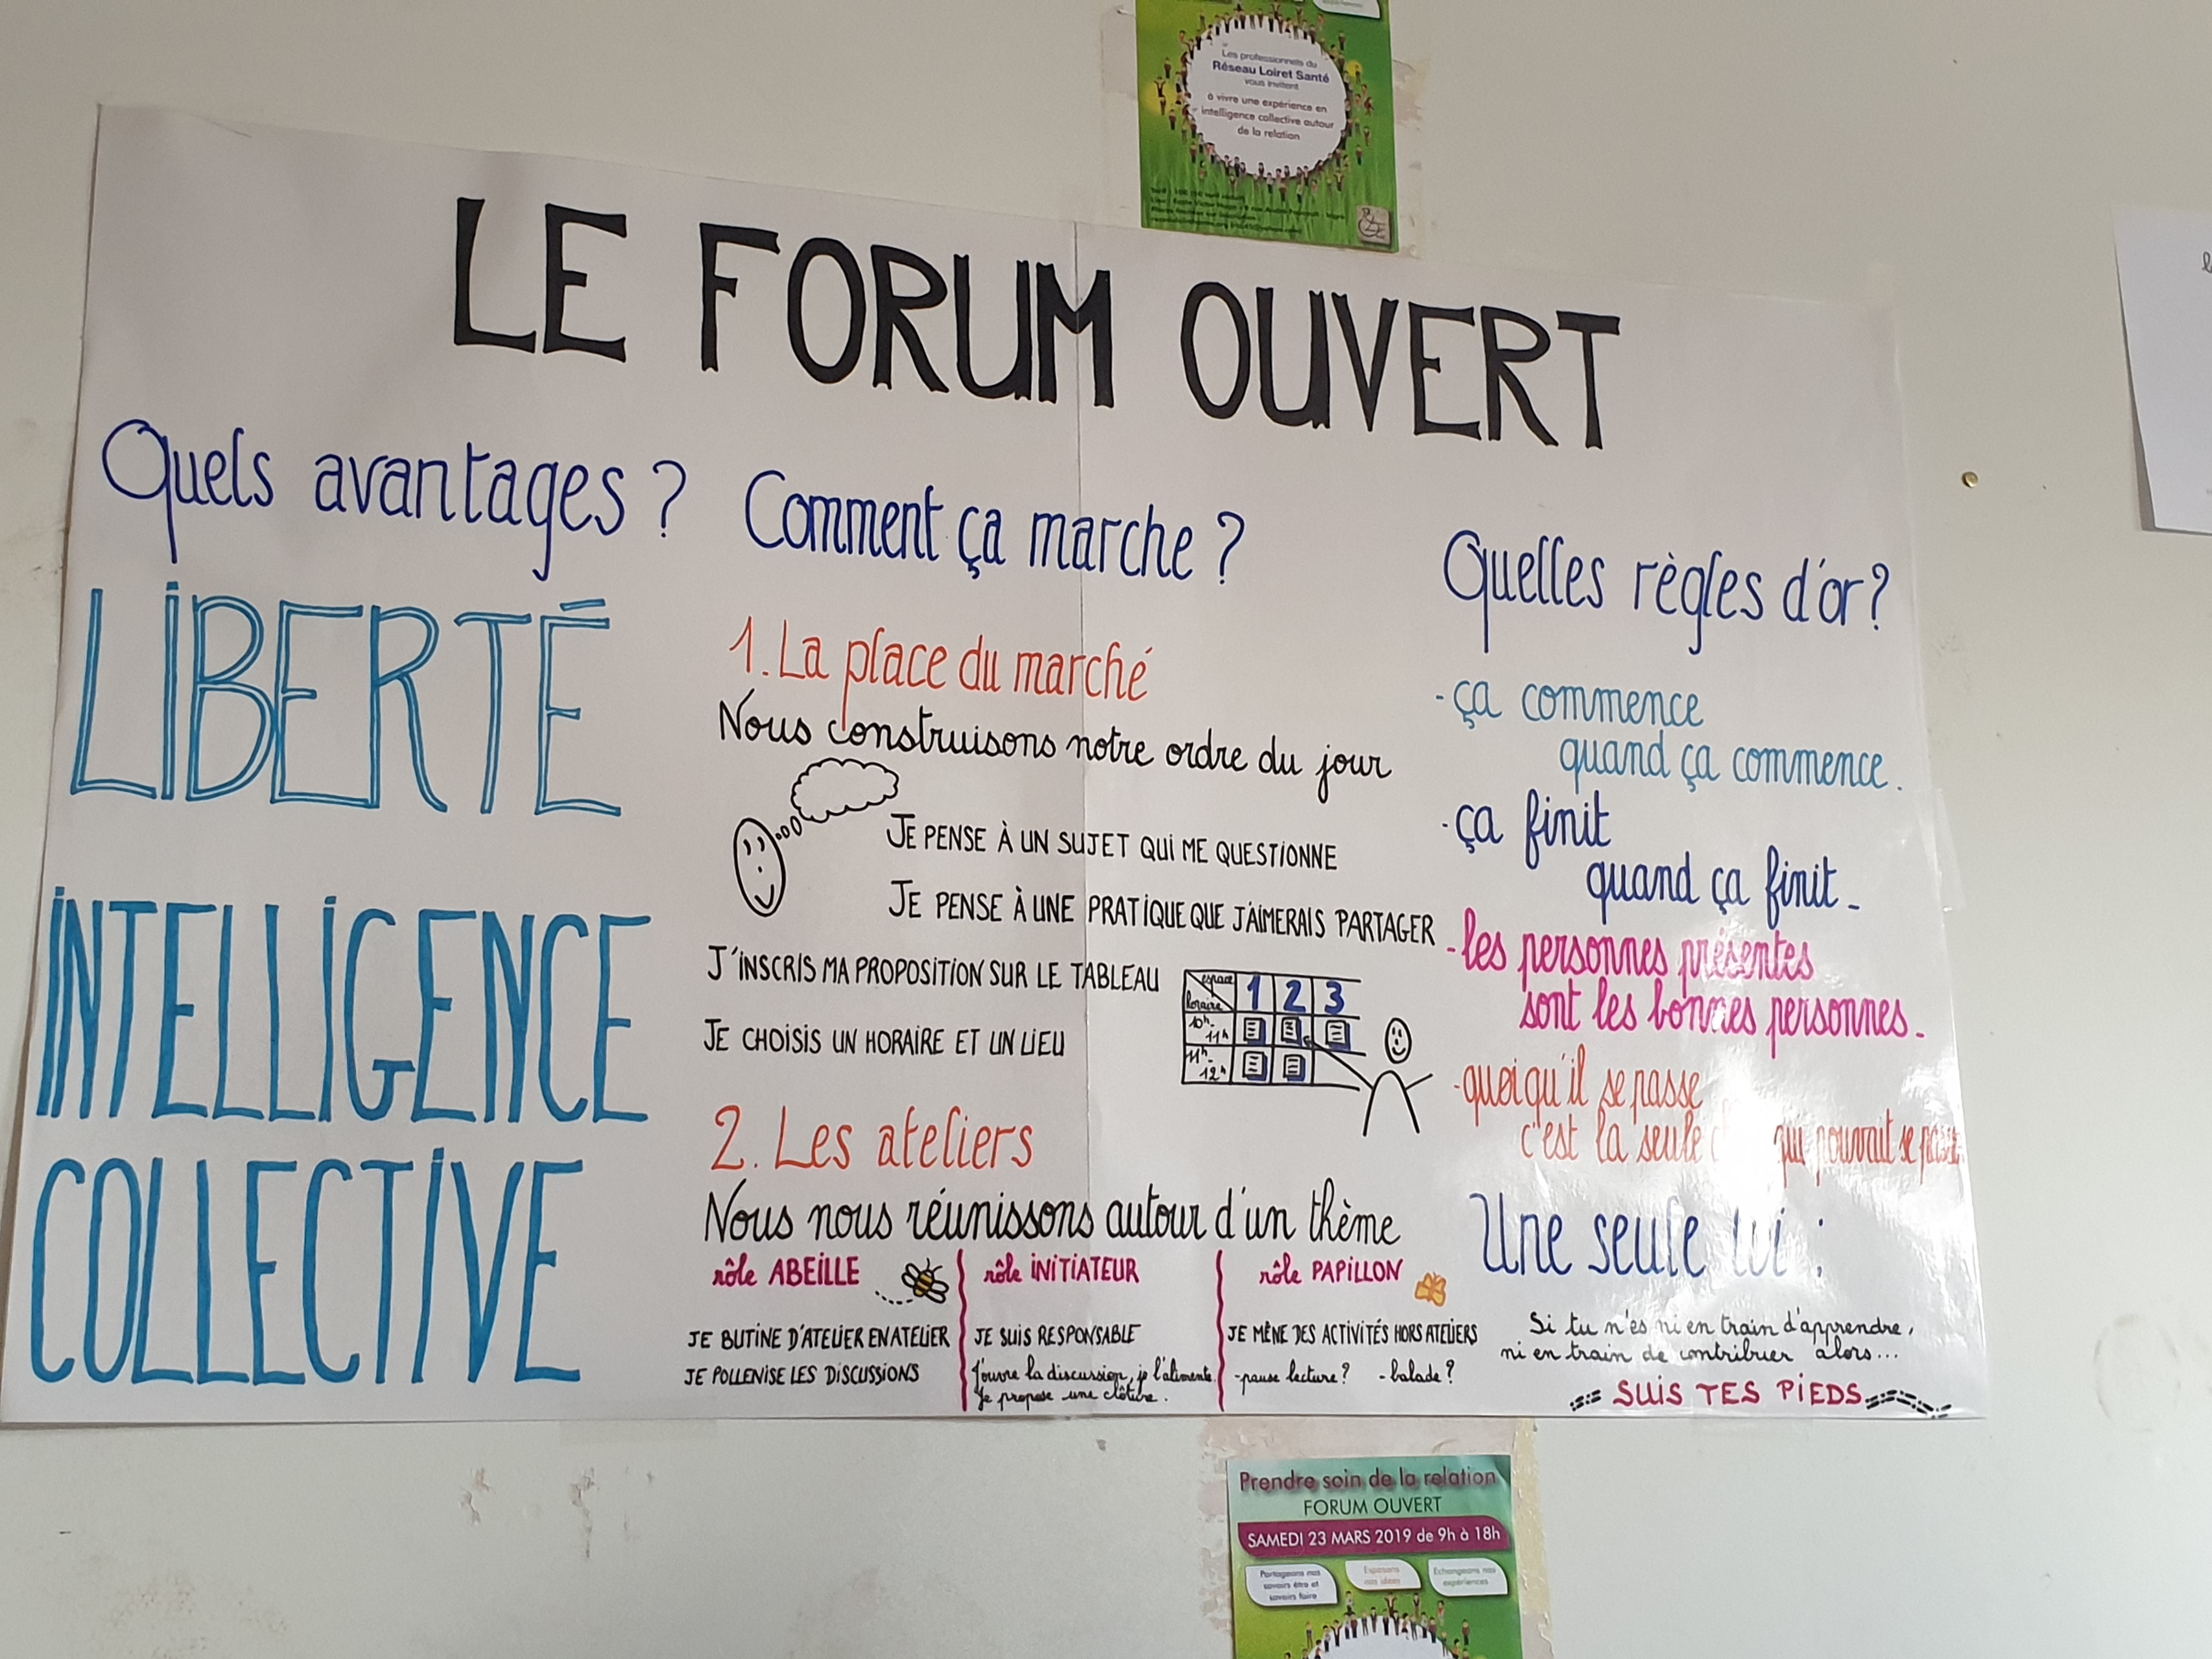 Les professionnels du
Réseau Loiret Santé
vous invitent
à vivre une expérience en
intelligence collective autour
de la relation
LE FORUM OUVERT
Quels avantages ?
LIBERTÉ
INTELLIGENCE
COLLECTIVE
Comment ça marche ?
1. La place du marché
Nous construisons notre ordre du jour
JE PENSE À UN SUJET QUI ME QUESTIONNE
JE PENSE À UNE PRATIQUE QUE J'AIMERAIS PARTAGER
J'INSCRIS MA PROPOSITION SUR LE TABLEAU
JE CHOISIS UN HORAIRE ET UN LIEU
espace 1 2 3
horaire
10h-
11h
11h-
12h
2. Les ateliers
Nous nous réunissons autour d'un thème
rôle ABEILLE
JE BUTINE D'ATELIER EN ATELIER
JE POLLENISE LES DISCUSSIONS
rôle INITIATEUR
JE SUIS RESPONSABLE
J'ouvre la discussion, je l'alimente
Je propose une clôture.
rôle PAPILLON
JE MÈNE DES ACTIVITÉS HORS ATELIERS
-pause lecture? -balade?
Quelles règles d'or?
-ça commence
quand ça commence.
-ça finit
quand ça finit-
-les personnes présentes
sont les bonnes personnes-
-quoiqu'il se passe
c'est la seule qui pourrait se passer
Une seule loi :
Si tu n'es ni en train d'apprendre,
ni en train de contribuer alors...
SUIS TES PIEDS
Prendre soin de la relation
FORUM OUVERT
SAMEDI 23 MARS 2019 de 9h à 18h
Partageons nos
savoirs être et
savoirs faire
Exposons
nos idées
Echangeons nos
expériences